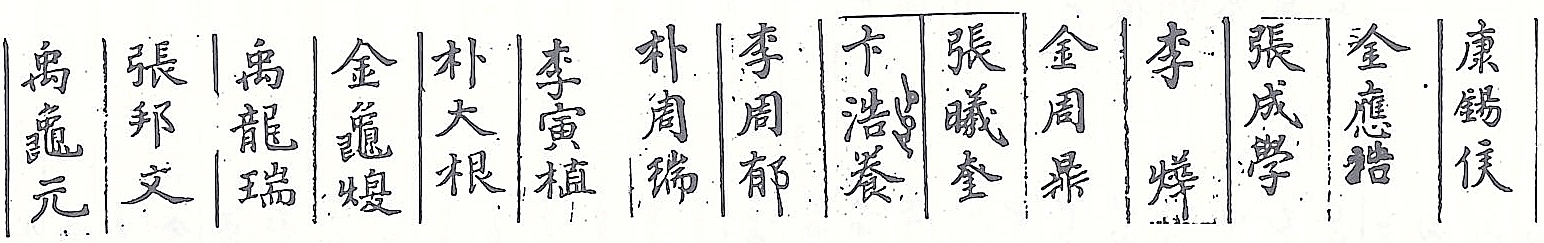 康錫侯
金應祰
張成學
李燁
金周鼎
張曦奎
卞浩養
李周郁
朴周瑞
李寅植
朴大根
金龜煥
禹龍瑞
張邦文
禹龜元